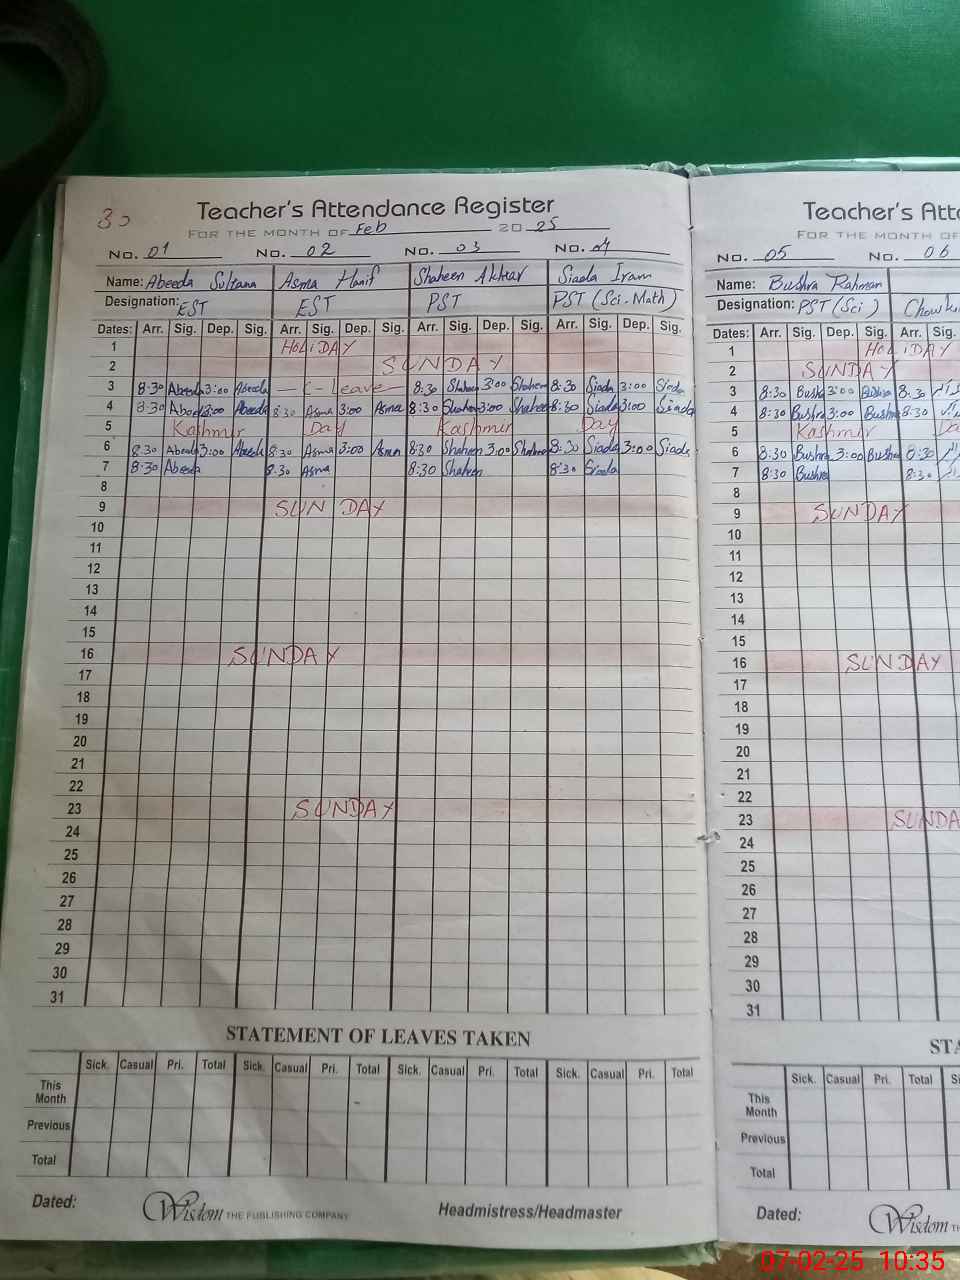 30
Teacher's Attendance Register
FOR THE MONTH OF Feb 20 25
No. 01 No. 02 No. 03 No. 04
Name: Abeeda Sultana Asma Hanif Shaheen Akhtar Siada Iram
Designation: EST EST PST PST (Sci-Math)
Dates: Arr. Sig. Dep. Sig. Arr. Sig. Dep. Sig. Arr. Sig. Dep. Sig. Arr. Sig. Dep. Sig.
1 HOLIDAY
2 SUNDAY
3 8:30 Abeeda 3:00 Abeeda — C - Leave — 8:30 Shaheen 3:00 Shaheen 8:30 Siada 3:00 Siada
4 8:30 Abeeda 3:00 Abeeda 8:30 Asma 3:00 Asma 8:30 Shaheen 3:00 Shaheen 8:30 Siada 3:00 Siada
5 Kashmir Day Kashmir Day
6 8:30 Abeeda 3:00 Abeeda 8:30 Asma 3:00 Asma 8:30 Shaheen 3:00 Shaheen 8:30 Siada 3:00 Siada
7 8:30 Abeeda 8:30 Asma 8:30 Shaheen 8:30 Siada
8
9 SUNDAY
10
11
12
13
14
15
16 SUNDAY
17
18
19
20
21
22
23 SUNDAY
24
25
26
27
28
29
30
31
STATEMENT OF LEAVES TAKEN
Sick. Casual Pri. Total Sick. Casual Pri. Total Sick. Casual Pri. Total Sick. Casual Pri. Total
This Month
Previous
Total
Dated: Wisdom THE PUBLISHING COMPANY Headmistress/Headmaster
Teacher's Atte
FOR THE MONTH OF
No. 05 No. 06
Name: Bushra Rahman
Designation: PST (Sci) Chowki
Dates: Arr. Sig. Dep. Sig. Arr. Sig.
1 HOLIDAY
2 SUNDAY
3 8:30 Bushra 3:00 Bushra 8:30
4 8:30 Bushra 3:00 Bushra 8:30
5 Kashmir Da
6 8:30 Bushra 3:00 Bushra 8:30
7 8:30 Bushra 8:30
8
9 SUNDAY
10
11
12
13
14
15
16 SUNDAY
17
18
19
20
21
22
23 SUNDA
24
25
26
27
28
29
30
31
STA
Sick. Casual Pri. Total Si
This Month
Previous
Total
Dated: Wisdom TH
07-02-25 10:35